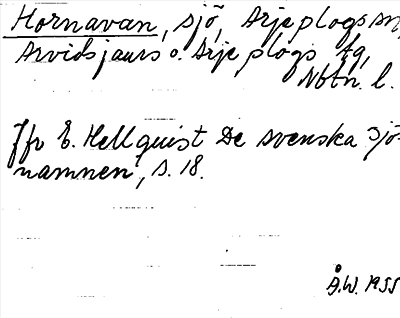 Hornavan, sjö, Arjeplogs sn,
Arvidsjaurs o. Arjeplogs tg,
Nbtn. l.
Jfr E. Hellquist De svenska sjö-
namnen, s. 18.
Å.W. 1955